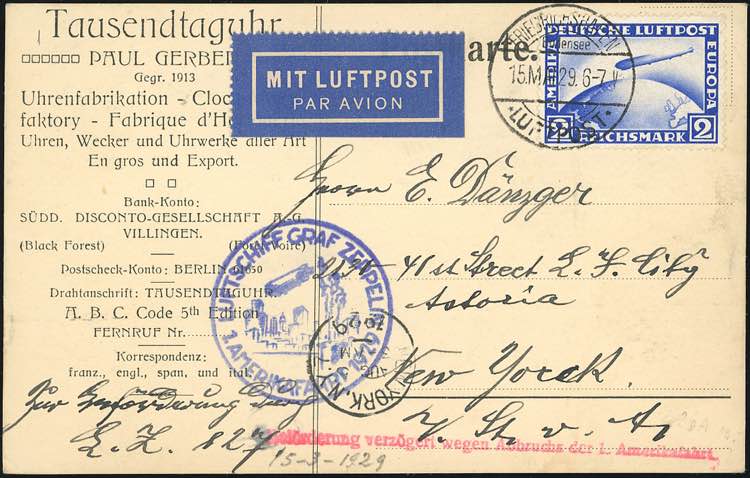 Tausendtaguhr
PAUL GERBE
Gegr. 1913
Uhrenfabrikation - Cloc
faktory - Fabrique d'Ho
Uhren, Wecker und Uhrwerke aller Art
En gros und Export.
Bank-Konto:
SÜDD. DISCONTO-GESELLSCHAFT A-G.
VILLINGEN.
(Black Forest) (Foret-Noire)
Postscheck-Konto: BERLIN
Drahtanschrift: TAUSENDTAGUHR.
A. B. C. Code 5th Edition
FERNRUF Nr.
Korrespondenz:
franz., engl., span, und ital.
Zur Beförderung durch
L. Z. 127
15-3-1929
MIT LUFTPOST
PAR AVION
arte.
FRIEDRICHSHAFEN
15.MAI 29. 6-7
LUFTPOST
DEUTSCHE LUFTPOST
AMERIKA
EUROPA
2 REICHSMARK 2
Herrn E. Dänzger
41 st Street L. I. City
Astoria
New Yorck
U. St. v. A.
LUFTSCHIFF GRAF ZEPPELIN
1. AMERIKAFAHRT 1929
YORK, N.
AUG
1929
Beförderung verzögert wegen Abbruchs der 1. Amerikafahrt.